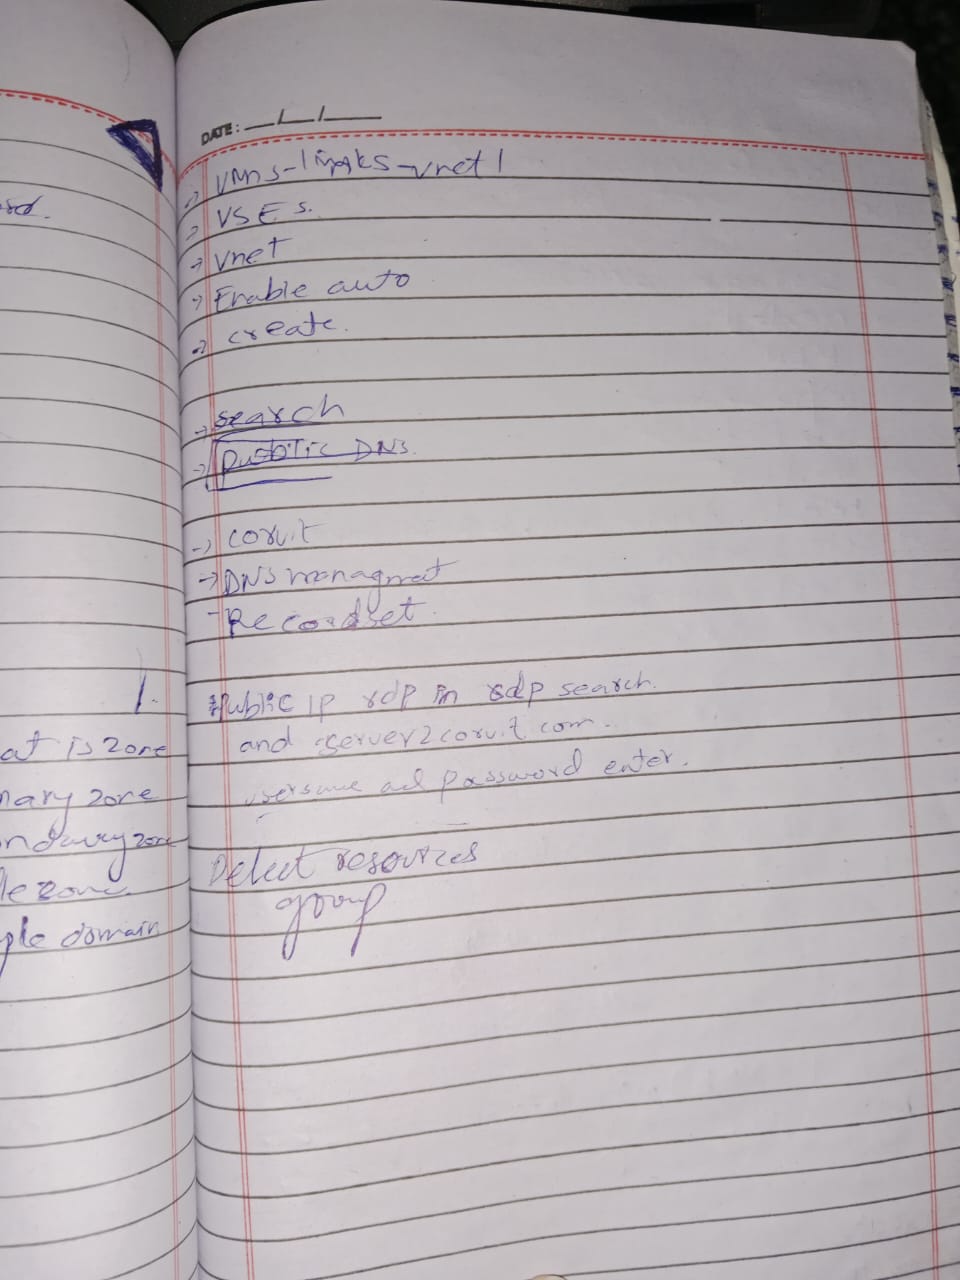 sed.
at is zone
nary zone
ndawy zone
le zone
ple domain
1.
DATE: __/__/____
→ VMns-links-vnet1
→ VSES.
→ vnet
→ Enable auto
→ create.
→ search
→ public DNS.
→ corvit
→ DNS managmet
- Recordset.
Public ip rdp in rdp search.
and server2corvit.com.
password enter.
Delect resources
group